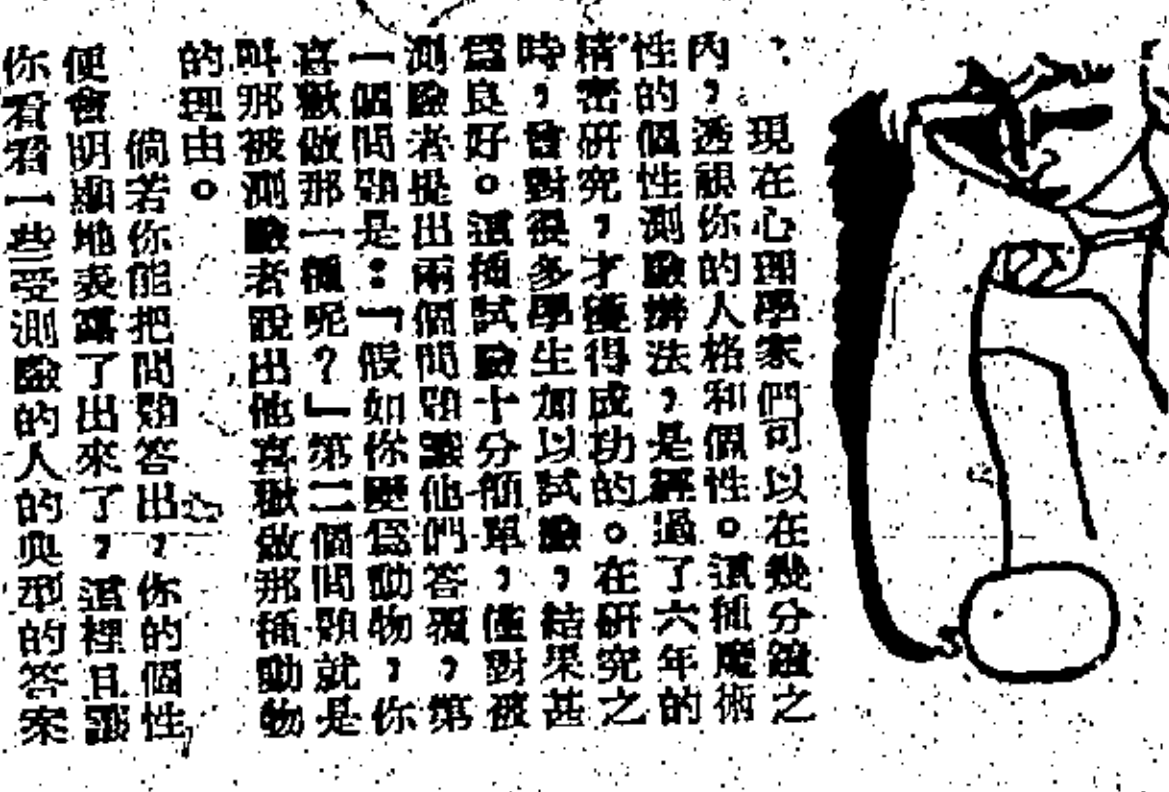 現在心理學家們可以在幾分鐘之
內，透視你的人格和個性。這種魔術
性的個性測驗辦法，是經過了六年的
精密研究，才獲得成功的。在研究之
時，曾對很多學生加以試驗，結果甚
爲良好。這種試驗十分簡單，僅對被
測驗者提出兩個問題讓他們答覆，第
一個問題是：「假如你變爲動物，你
喜歡做那一種呢？」第二個問題就是
叫那被測驗者說出他喜歡做那種動物
的理由。
倘若你能把問題答出，你的個性
便會明顯地表露了出來了，這裡且讓
你看看一些受測驗的人的典型的答案